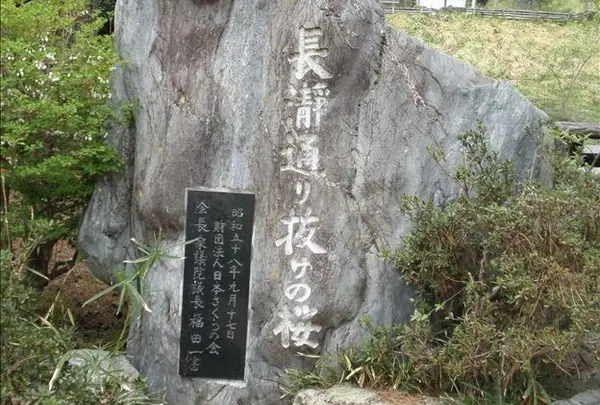 長瀞通り抜けの桜
昭和五十八年九月十七日
財団法人日本さくらの会
会長 衆議院議長 福田一書